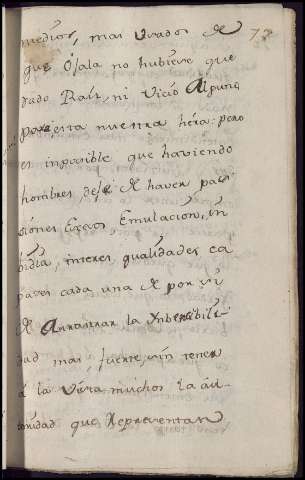 77
medios, mas Usados de
que Ojala no hubiere que
dado Raiz, ni Vicio Alguno
para esta nuestra héra: pero
es inposible que haviendo
hombres, dexe de haver pa
siones Emulacion, in
bidia, interes, qualidades ca
pazes cada una de por si
de Arrastrar la
dad mas fuerte, sin tener
á la Vista muchos la áu-
toridad que Representan